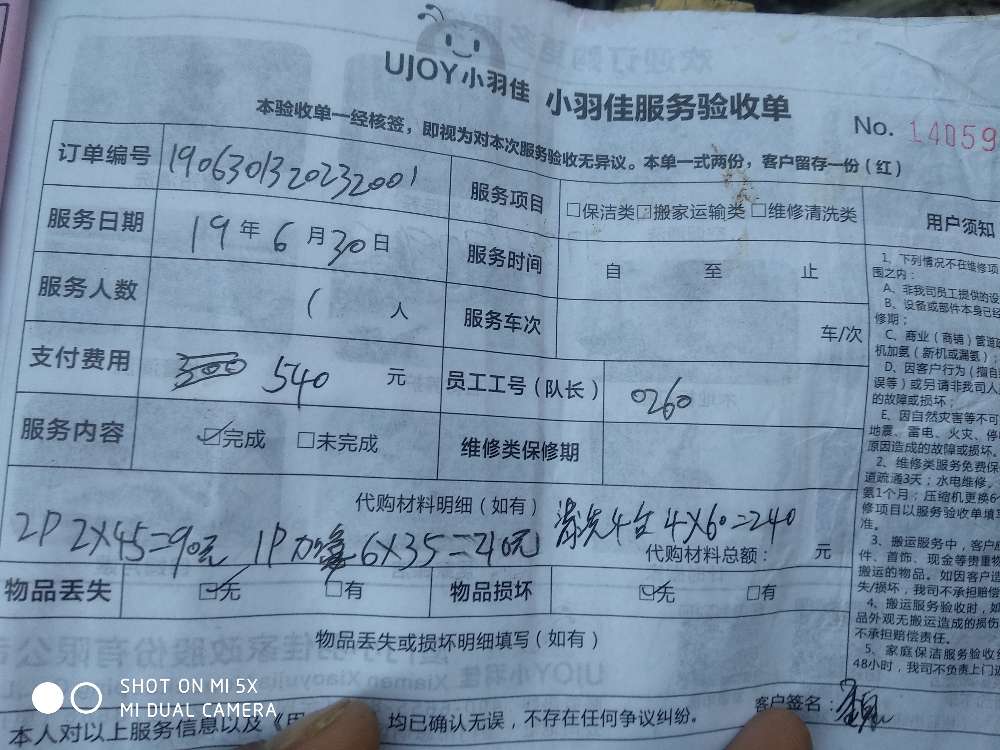 UJOY小羽佳 小羽佳服务验收单
No. 14059
本验收单一经核签，即视为对本次服务验收无异议。本单一式两份，客户留存一份（红）
订单编号 1906301320232001 服务项目 □保洁类 ☑搬家运输类 □维修清洗类
服务日期 19年6月30日 服务时间 自 至 止
服务人数 1 人 服务车次 车/次
支付费用 540 元 员工工号（队长） 0260
服务内容 ☑完成 □未完成 维修类保修期
代购材料明细（如有）
2P 2X45=90元 1P加 6X35=210元 清洗4台 4X60=240
代购材料总额： 元
物品丢失 ☑无 □有 物品损坏 ☑无 □有
物品丢失或损坏明细填写（如有）
客户签名：
本人对以上服务信息以及《用
均已确认无误，不存在任何争议纠纷。
用户须知
1、下列情况不在维修项
围之内：
A、非我司员工提供的设
B、设备或部件本身已经
修期；
C、商业（商铺）管道
机加氨（新机或漏氨）；
D、因客户行为（擅自
误等）或另请非我司人
的故障或损坏；
E、因自然灾害等不可
地震、雷电、火灾、停
原因造成的故障或损坏。
2、维修类服务免费保
道疏通3天；水电维修、
氨1个月；压缩机更换6个
修项目以服务验收单填写
准。
3、搬运服务中，客户应
件、首饰、现金等贵重物
搬运的物品。如因客户造
失/损坏，我司不承担赔偿
4、搬运服务验收时，如
品外观无搬运造成的损伤
不承担赔偿责任。
5、家庭保洁服务验收
48小时，我司不负责上门返
SHOT ON MI 5X
MI DUAL CAMERA